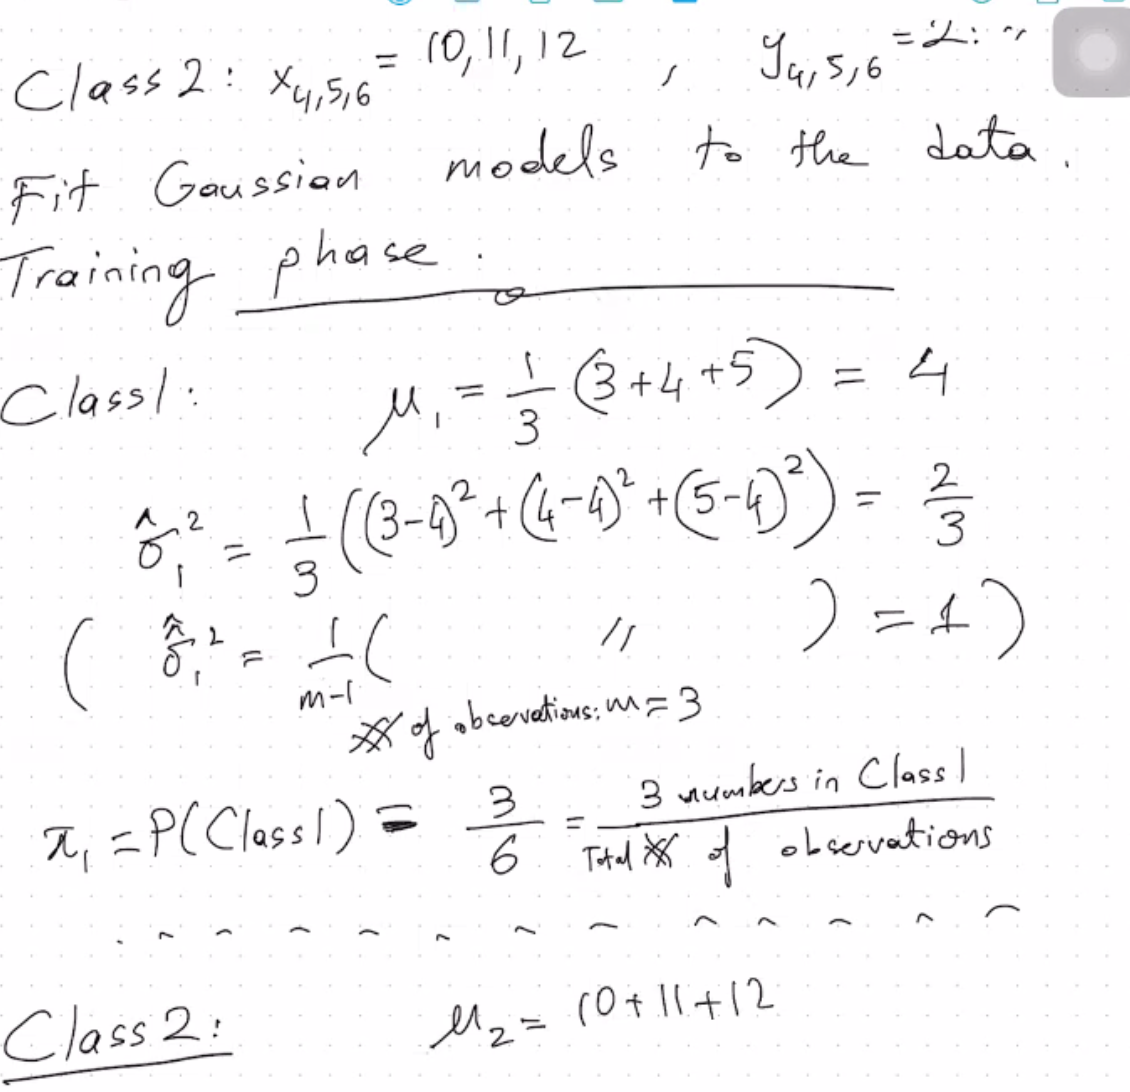 Class 2: x₄,₅,₆ = 10, 11, 12 , y₄,₅,₆ = 2: "
Fit Gaussian models to the data.
Training phase.
Class 1: μ₁ = 1/3 (3+4+5) = 4
σ̂₁² = 1/3 ((3-4)² + (4-4)² + (5-4)²) = 2/3
( σ̂₁² = 1/(m-1) ( " ) = 1 )
# of observations: m = 3
π₁ = P(Class 1) = 3/6 = 3 numbers in Class 1 / Total # of observations
Class 2: μ₂ = 10+11+12